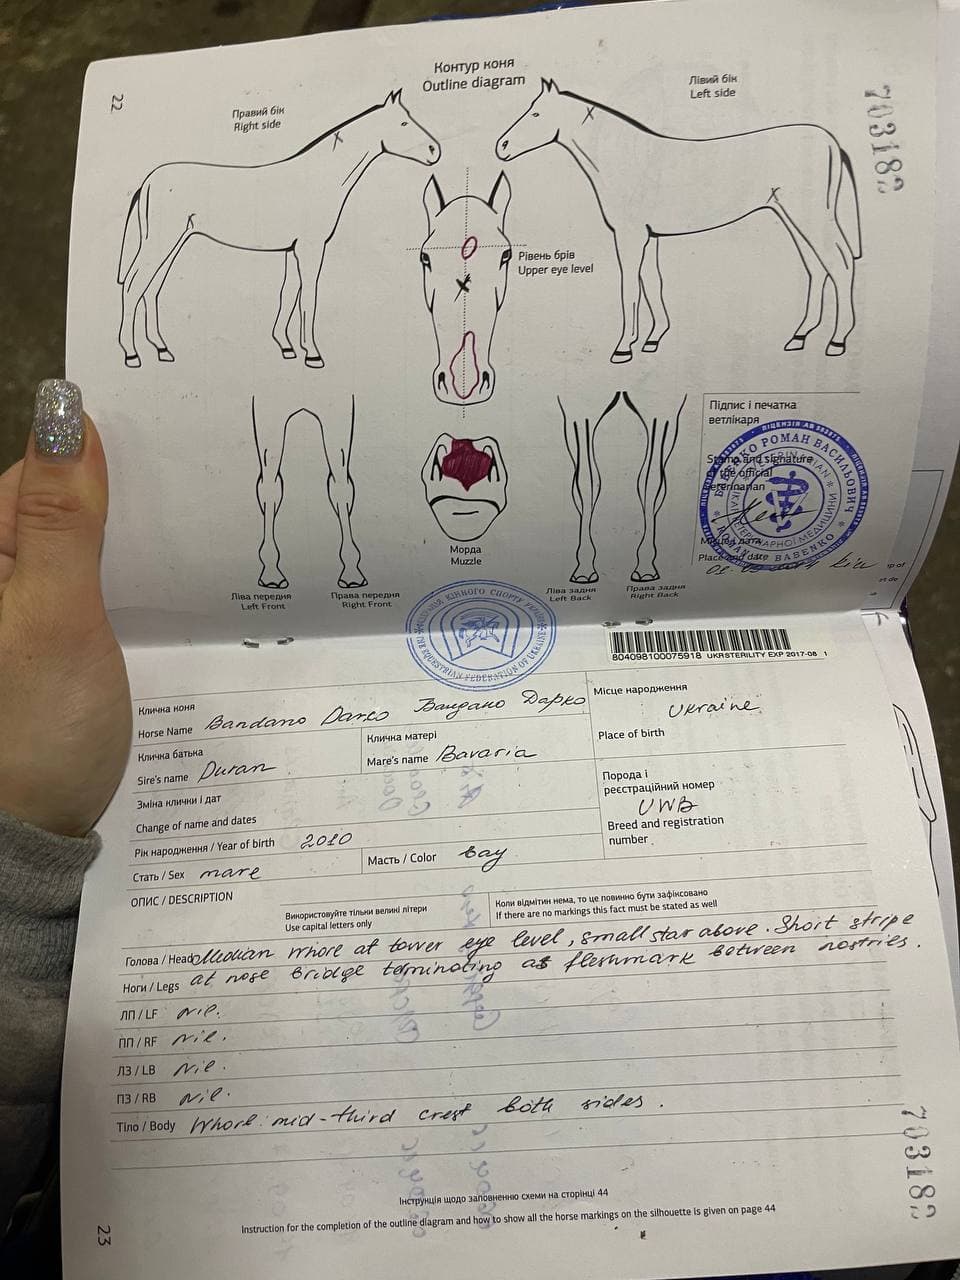 22
Контур коня
Outline diagram
Правий бік
Right side
Лівий бік
Left side
703182
Рівень брів
Upper eye level
Підпис і печатка
ветлікаря
Stamp and signature
the official
veterinarian
Place and date
Kiev
БАБЕНКО РОМАН ВАСИЛЬОВИЧ
ROMAN V BABENKO
ЛІКАР ВЕТЕРИНАРНОЇ МЕДИЦИНИ
Морда
Muzzle
Ліва передня
Left Front
Права передня
Right Front
Ліва задня
Left Back
Права задня
Right Back
ФЕДЕРАЦІЯ КІННОГО СПОРТУ УКРАЇНИ
EQUESTRIAN FEDERATION OF UKRAINE
804098100075918 UKR STERILITY EXP 2017-08 1
Кличка коня
Horse Name Bandano Darco Бандано Дарко
Місце народження
Ukraine
Place of birth
Кличка батька
Sire's name Duran
Кличка матері
Mare's name Bavaria
Зміна клички і дат
Change of name and dates
Порода і
реєстраційний номер
UWB
Breed and registration
number
Рік народження / Year of birth 2010
Стать / Sex mare
Масть / Color bay
ОПИС / DESCRIPTION
Використовуйте тільки великі літери
Use capital letters only
Коли відмітин нема, то це повинно бути зафіксовано
If there are no markings this fact must be stated as well
Голова / Head Median whorl at lower eye level, small star above. Short stripe
Ноги / Legs at nose bridge terminating as fleshmark between nostries.
ЛП / LF nil.
ПП / RF nil.
ЛЗ / LB nil.
ПЗ / RB nil.
Тіло / Body Whorl: mid-third crest both sides.
Інструкція щодо заповненню схеми на сторінці 44
Instruction for the completion of the outline diagram and how to show all the horse markings on the silhouette is given on page 44
23
703182